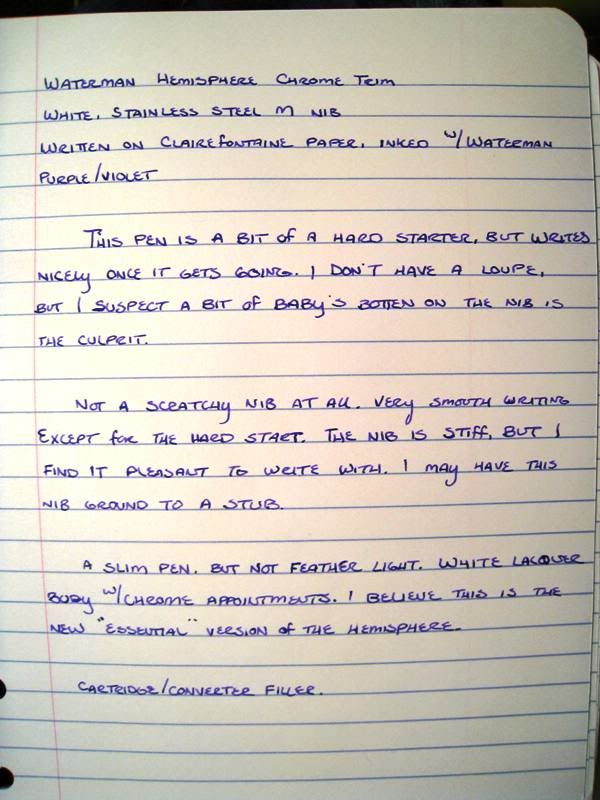 Waterman Hemisphere Chrome Trim
White, Stainless Steel M nib
Written on Clairefontaine paper, inked w/Waterman
Purple/Violet
This pen is a bit of a hard starter, but writes
nicely once it gets going. I don't have a loupe,
but I suspect a bit of baby's botten on the nib is
the culprit.
Not a scratchy nib at all. Very smooth writing
except for the hard start. The nib is stiff, but I
find it pleasant to write with. I may have this
nib ground to a stub.
A slim pen, but not feather light. White lacquer
body w/chrome appointments. I believe this is the
new "Essential" version of the Hemisphere.
Cartridge/converter filler.